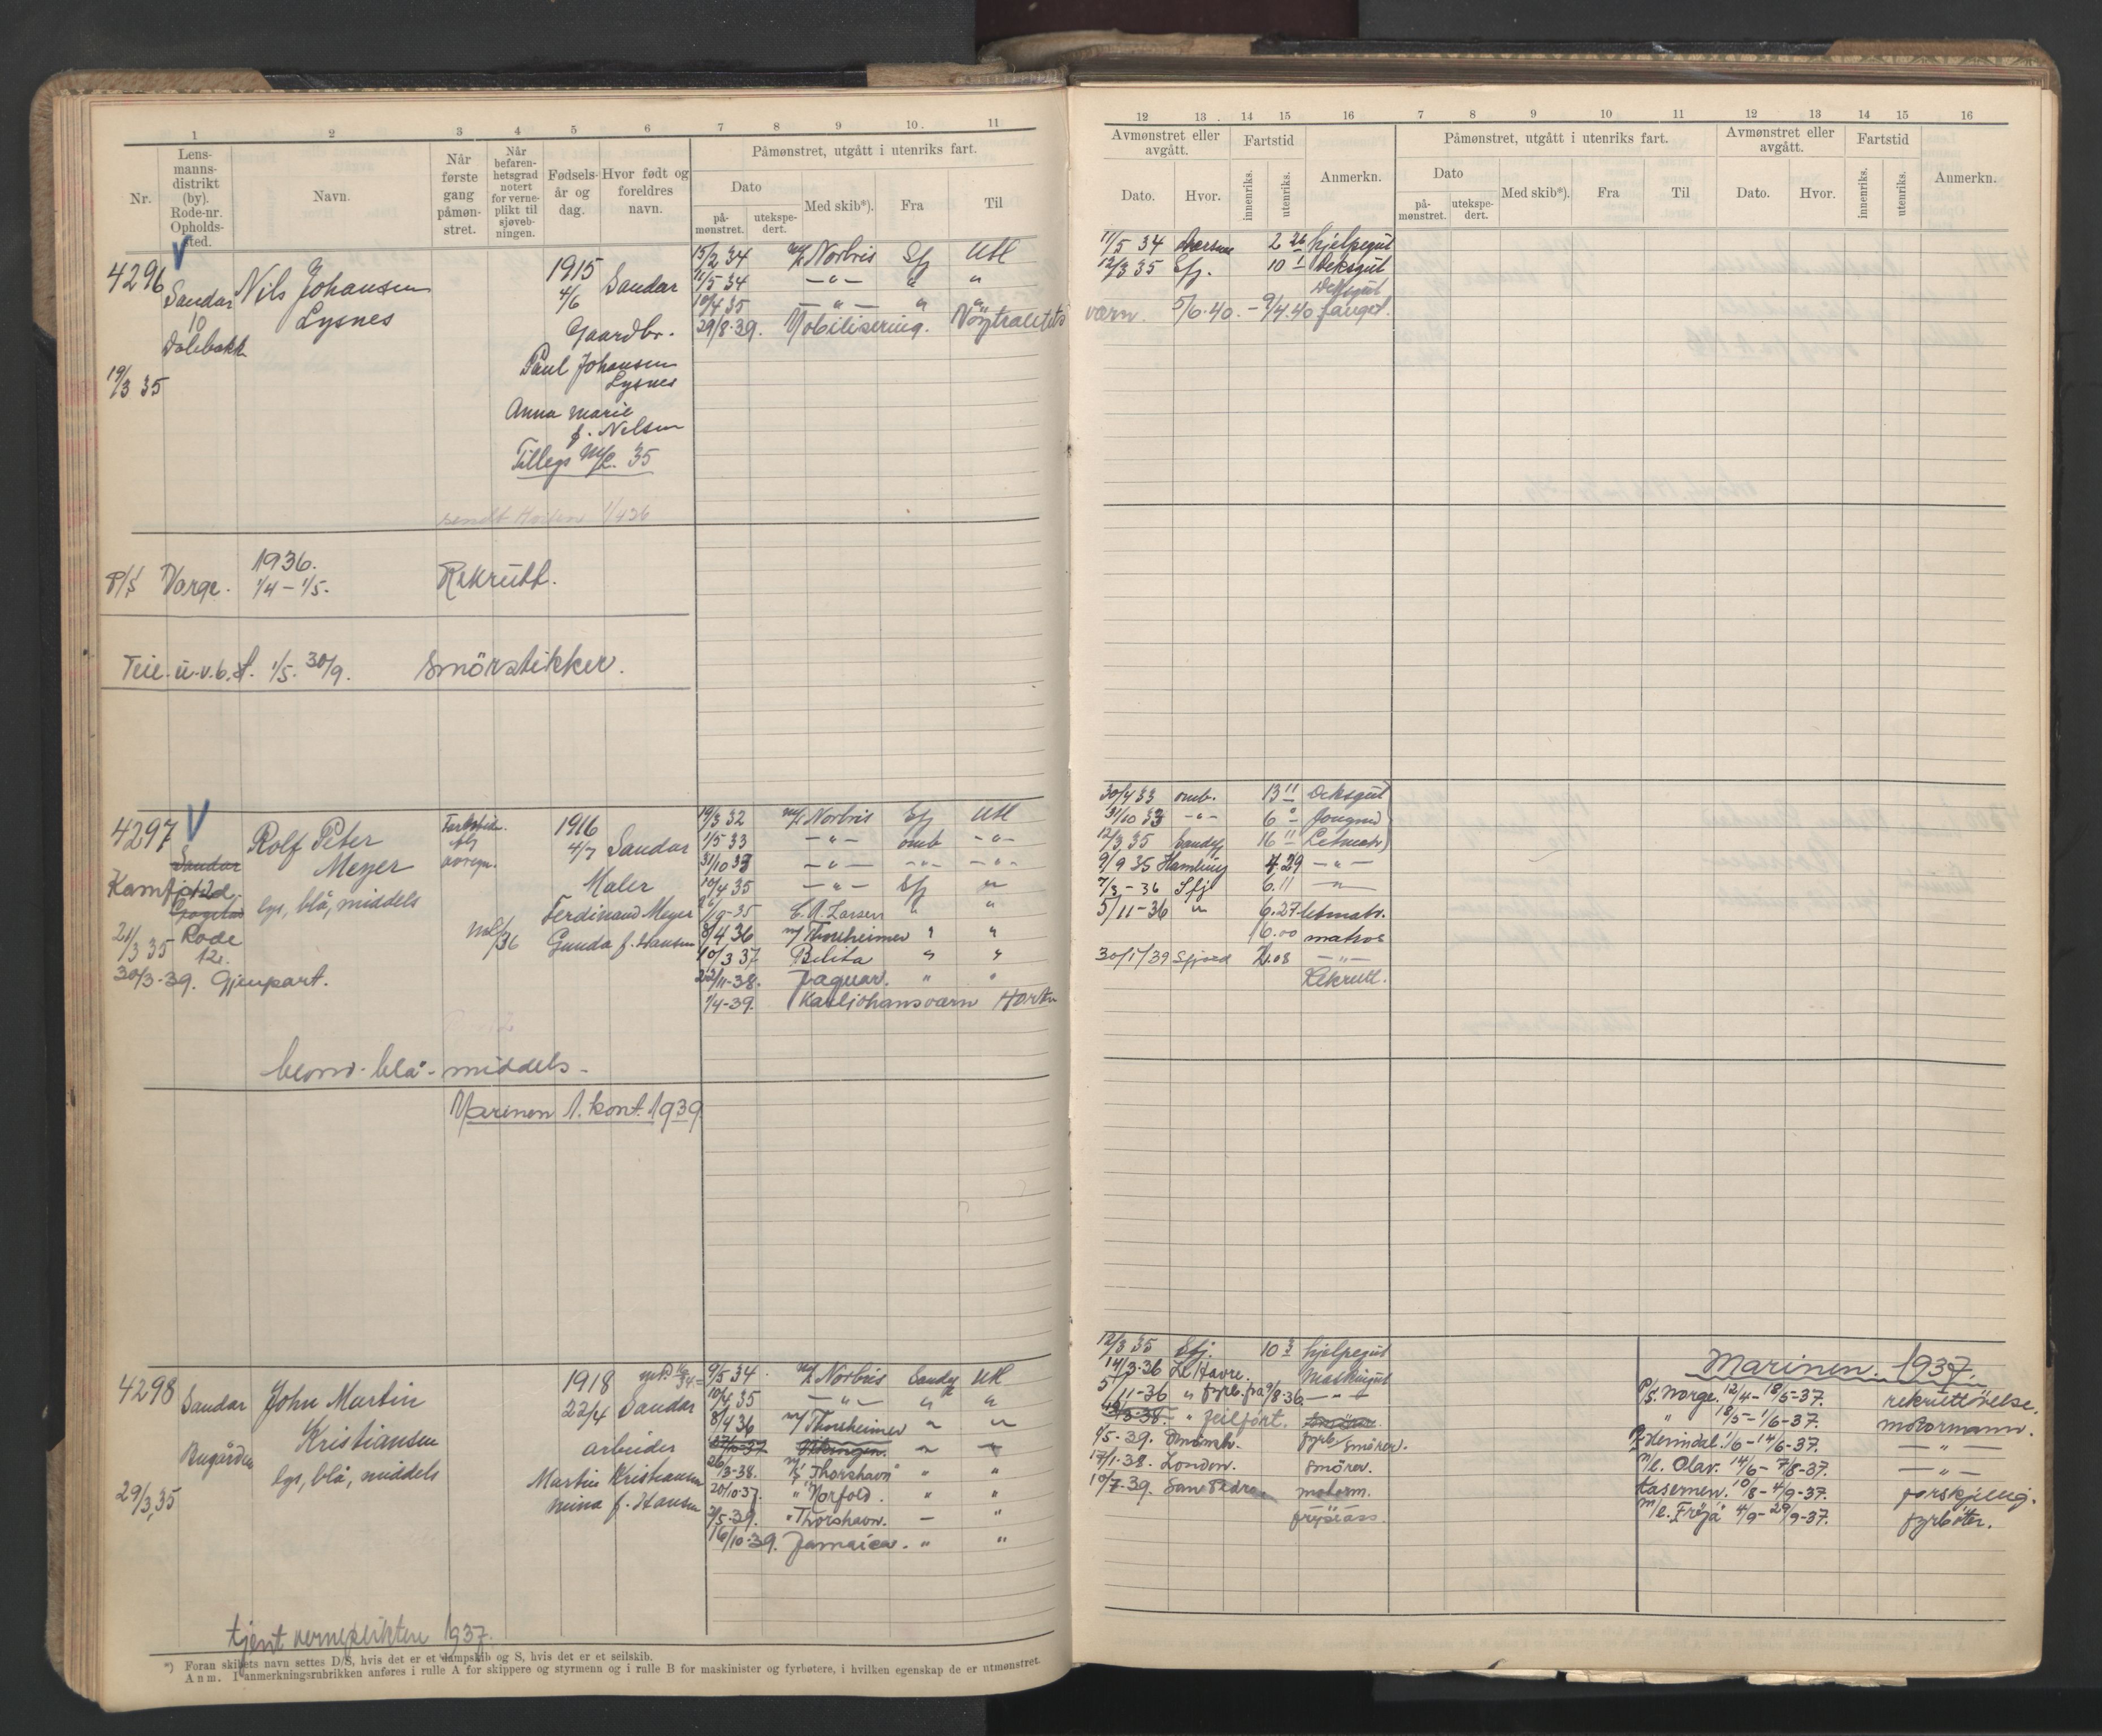 1 2 3 4 5 6 7 8 9 10. 11
Nr. Lens-manns-distrikt (by). Rode-nr. Opholds-sted. Navn. Når første gang påmøn-stret. Når befaren-hetsgrad notert for verne-plikt til sjøveb-ningen. Fødsels-år og dag. Hvor født og foreldres navn. Påmønstret, utgått i utenriks fart.
Dato Med skib*). Fra Til
på-mønstret. utekspe-dert.
4296 Sandar Nils Johansen 1915 Sandar 15/2 34 m/k Norbris Sfj Utl
10 Lysnes 4/6 11/5 34 —"— " "
Dølebakk Gaardbr. 10/4 35 —"— " "
29/8-39. Mobilisering. Nøytralitets
19/3 35 Paul Johansen
Lysnes
Anna Marie
f. Nilsen
Tillegs M/R. 35
sendt Horten 1/4 36
1936.
P/S Norge. 1/4 – 1/5. Rekrutt.
Teie u.v.b.st. 1/5. 30/9. Smörstikker.
4297 Rolf Peter 1916 Sandar 19/3 32 m/k Norbris Sfj Utl
Sandar Meyer 4/7 1/5 33 —"— omb —"—
Kamfjord lys, blå, middels Maler 31/10 33 —"— —"— —"—
10/4 35 —"— Sfj "
Ferdinand Meyer /10-35 C. A. Larsen " "
21/3 35 Rode 12. Gunda f. Hansen 8/4 36 m/ Thorsheimer " "
10/3 37 Belita " "
30/3-39. Gjenpart. 22/11-38. Jaguar. " "
1/4-39. Karljohansværn Horten
blond - blå - middels -
Marinen 1. kont. 1939
4298 Sandar John Martin 1918 9/5 34. m/k Norbris Sandefj Utl
Kristiansen 22/4 Sandar 10/4 35 —"— " "
Bugården lys, blå, middels arbeider 8/4 36 m/ Thorsheimer " "
27/10-37 Vikingen. " "
29/3,35 Martin Kristiansen 26/3-38. Thorshavn " "
Mina f. Hansen 20/10-37. " Norfold. " "
2/5-39. " Thorshavn. — "
16/10-39. Jamaica. " "
tjent verneplikten 1937.
*) Foran skibets navn settes D/S, hvis det er et dampskib og S, hvis det er et seilskib.
Anm. I anmerkningsrubrikken anføres i rulle A for skippere og styrmenn og i rulle B for maskinister og fyrbøtere, i hvilken egenskap de er utmønstret.
12 13. 14 15 16 7 8 9 10 11 12 13 14 15 16
Avmønstret eller avgått. Fartstid Anmerkn. Påmønstret, utgått i utenriks fart. Avmønstret eller avgått. Fartstid Anmerkn.
Dato. Hvor. innenriks. utenriks. Dato på-mønstret. utekspe-dert. Med skib*). Fra Til Dato. Hvor. innenriks. utenriks.
11/5 34 2 26 hjelpegut
12/3 35 Sfj. 10 1 Deksgut
Deksgut
værn. 5/6.40. – 9/4.40 fanget.
30/4 33 omb. 13 11 Deksgut
31/10 33 —"— 6 0 Jungmd
12/3 35 Sandefj 16 11 Letmatr
9/9 35 Hamburg 4.29 —"—
7/3-36 Sfj 6.11 —"—
5/11-36 " 6.27 letmatr.
16.00 matros
30/1/39 Sfjord 21.08 —"—
Rekrutt.
12/3 35 Sfj. 10 3 hjelpegut
14/3-36 Le Havre. Maskingut
5/11-36 " fyrb. fra 9/8-36 —"—
" feilført.
/5-39. fyrb. smører.
17/1-38. London. smører.
10/7-39. San Pedro. motorm.
fryseass.
Marinen. 1937.
P/S. Norge. 12/4 – 18/5-37. rekruttövelse.
" 18/5 – 1/6-37. motormann.
Heimdal. 1/6 – 14/6-37. —"—
m/l. Olav. 14/6 – 7/8-37. —"—
Kasernen. 10/8 – 4/9-37. forskjellig.
m/l. Fröja 4/9 – 29/9-37. fyrböter.